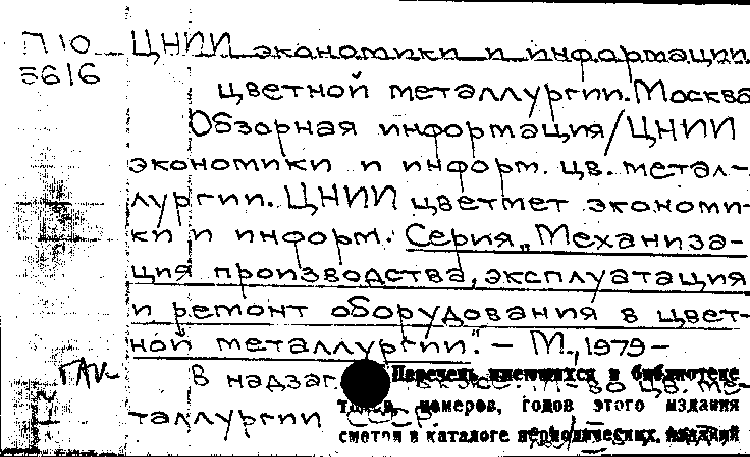 П10 ЦНИИ экономики и информации
5616 цветной металлургии. Москва
Обзорная информация/ЦНИИ
экономики и информ. цв. метал-
лургии. ЦНИИ цветмет экономи-
ки и информ. Серия „Механиза-
ция производства, эксплуатация
и ремонт оборудования в цвет-
ной металлургии". – М., 1979 –
В надзаг. М-во цв. ме-
таллургии СССР.
Перечень имеющихся в библиотеке
номеров, годов этого издания
смотри в каталоге периодических изданий